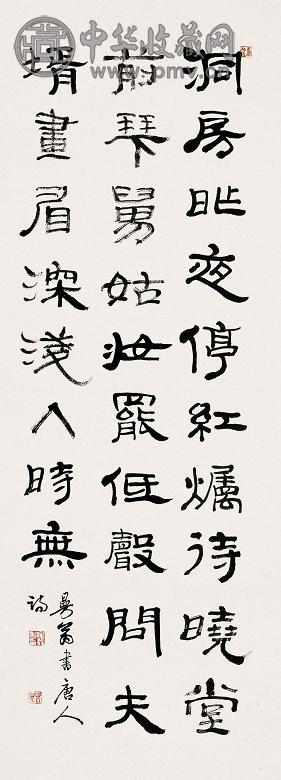 中华收藏网
www.pmv.cn
洞房昨夜停紅爥待曉堂
前拜舅姑妝罷低聲問夫
壻畫眉深淺入時無
曼翁書唐人
詩